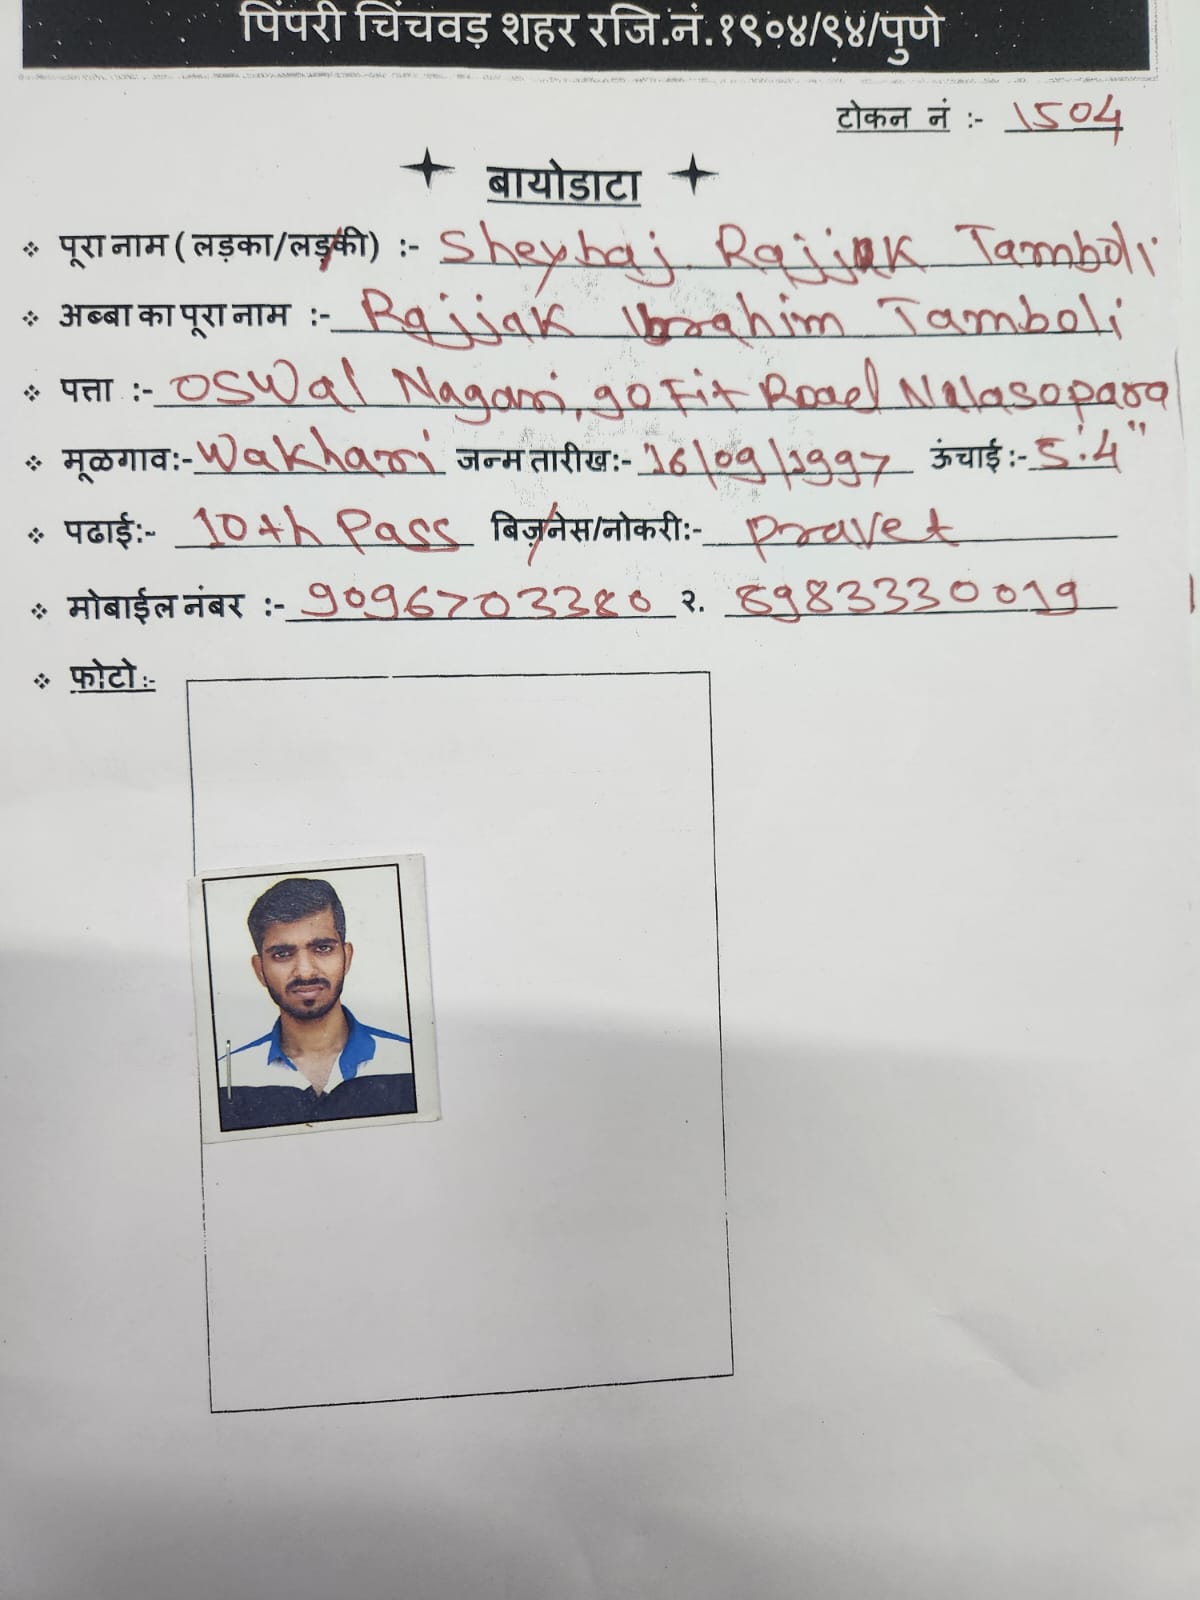 पिंपरी चिंचवड़ शहर रजि.नं.१९०४/९४/पुणे
टोकन नं :- 1504
बायोडाटा
पूरा नाम ( लड़का/लड़की) :- Sheybaj Rajjak Tamboli
अब्बा का पूरा नाम :- Rajjak Ibrahim Tamboli
पत्ता :- Oswal Nagari, 90 Fit Road Nalasopara
मूळगाव:- Wakhari जन्म तारीख:- 16/09/1997 ऊंचाई:- 5'.4"
पढाई:- 10th Pass बिज़नेस/नोकरी:- pravet
मोबाईल नंबर :- 9096703380 २. 8983330019
फोटो:-